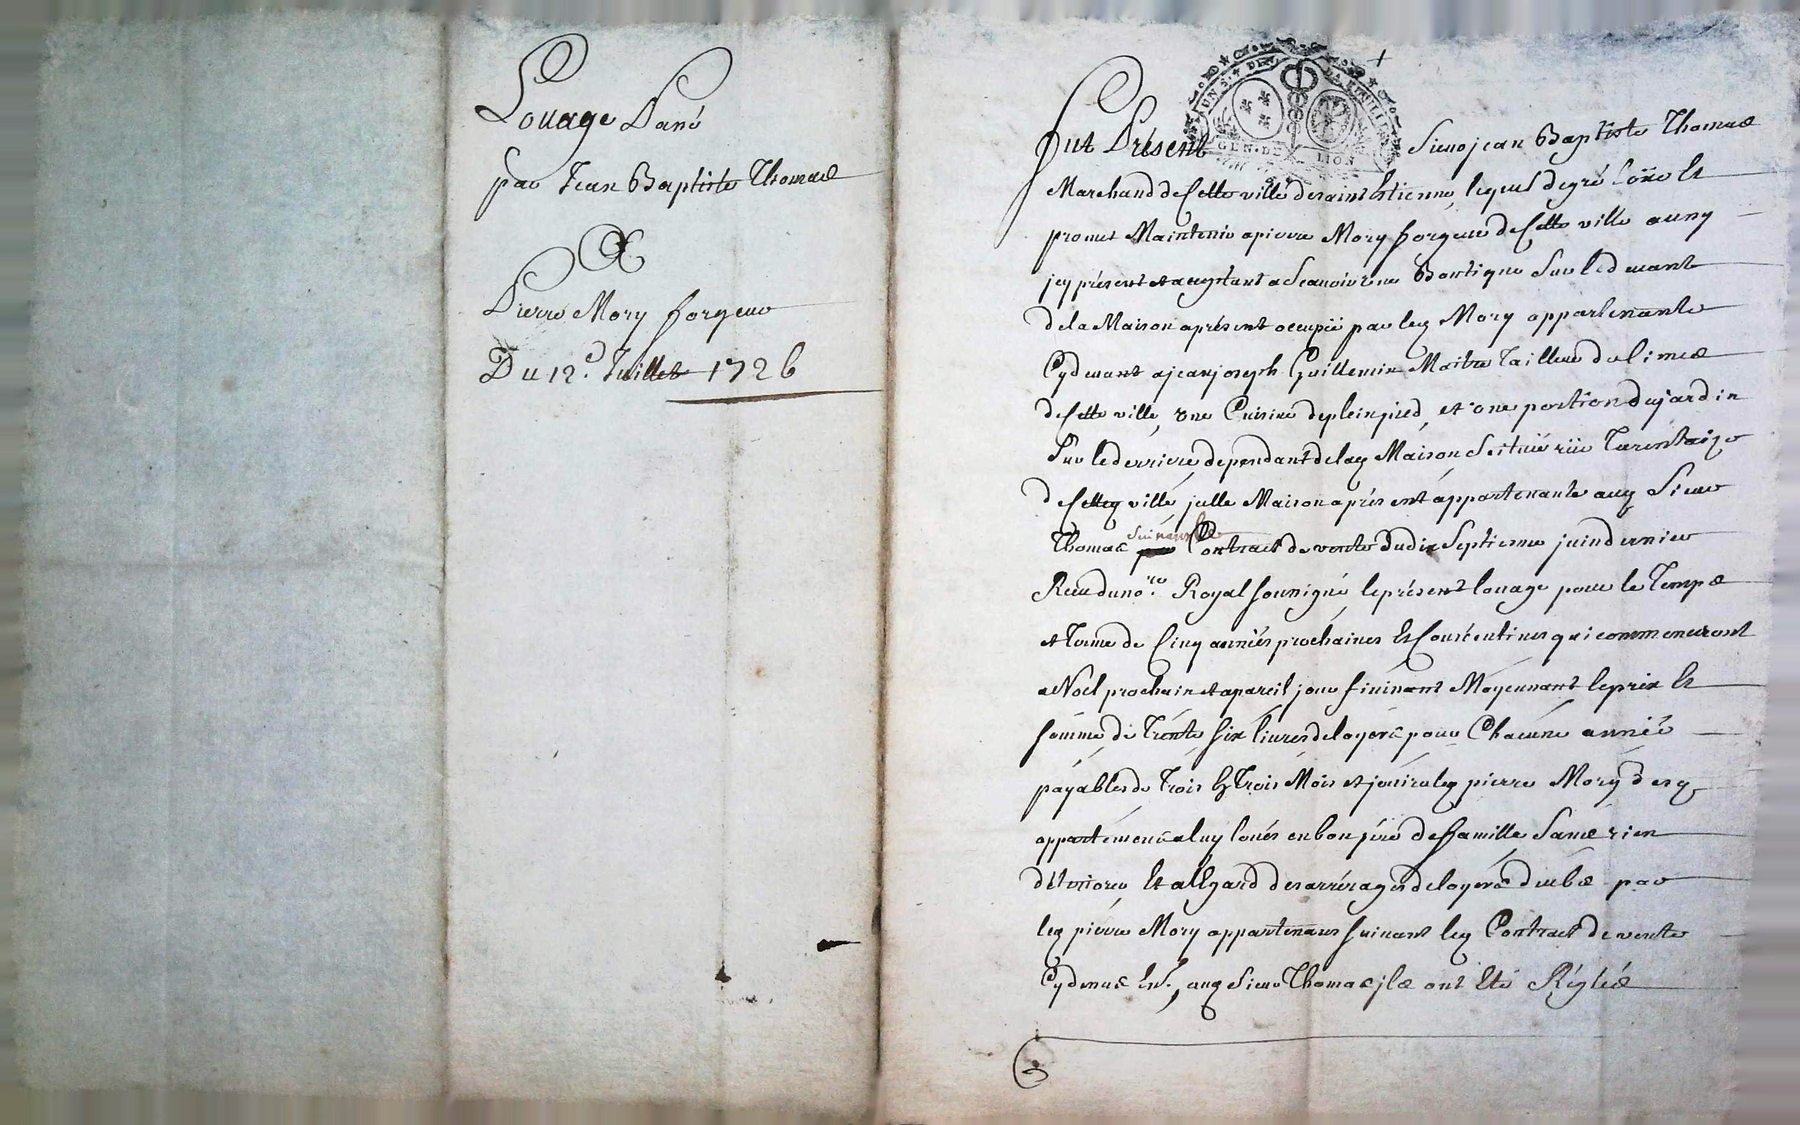 Louage Passé
par Jean Baptiste Thomas
A
Pierre Mory forgeur
Du 12e. Juillet 1726
UN S. 4 DEN. LA FEUILLE
GEN. DE LION
fut Présent Sieur jean Baptiste Thomas
Marchand de Cette ville de saint Estienne, lequel de gré loüe Et
promet Maintenir a pierre Mory forgeur de Cette ville a un q
jcy présent et aceptant a Scauoir une Boutique Sur le deuant
de la Maison aprésent occupeé par leq Mory appartenante
Cydeuant a jean joseph Guillemin Maitre Tailleur de limes
de Cette ville, une Cuisine de plein pied, et une portion du jardin
Sur le derriere dependant de laq Maison Scituée rüe Tarentaize
de Cetteq ville, jcelle Maison aprésent appartenante auq Sieur
Thomas Suiuant le Contract de vente du dix Septieme juin dernier
Receu du nore. Royal soussigné, le présent louage pour le Temps
et terme de Cinq années prochaines Et Consécutiues qui commenceront
a Noël prochain et a pareil jour finissant Moyennant le prix Et
somme de Trente six liures de loyers pour Chacune année
payables de Trois En Trois Mois et joüira leq pierre Mory desq
appartemens a luy loués en bon pere de famille Sans rien
détériorer Et a l'Egard des arrérages de loyers deubs par
leq pierre Mory appartenans suiuant leq Contract de vente
Cydessus En., auq Sieur Thomas jls ont Eté Réglés